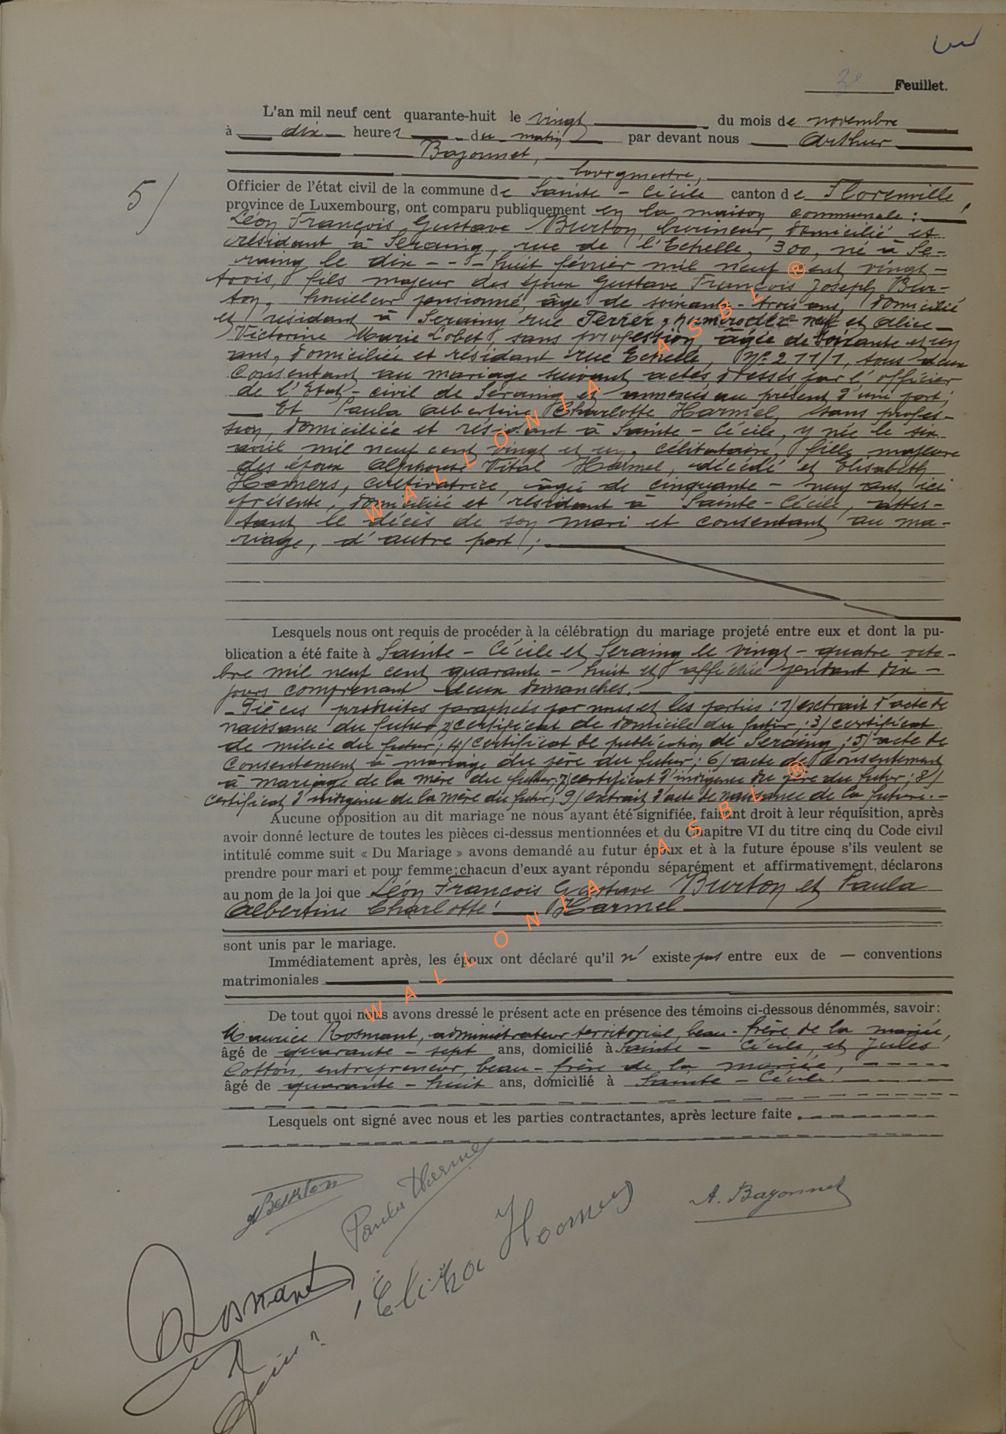 3e Feuillet.
L'an mil neuf cent quarante-huit le vingt du mois de novembre
à dix heures du matin par devant nous Arthur
Bazonnet,
bourgmestre,
5/
Officier de l'état civil de la commune de Sainte-Cécile canton de Florenville,
province de Luxembourg, ont comparu publiquement en la maison communale :
Léon François Gustave Burton, houilleur, domicilié et
résidant à Seraing, rue de l'Echelle, 300, né à Se-
raing le dix-huit février mil neuf cent vingt-
trois, fils majeur des époux Gustave François Joseph Bur-
ton, houilleur pensionné, âgé de soixante-trois ans, domicilié
et résidant à Seraing rue Ferrer, numéro neuf et Alice
Victorine Marie Lobet, sans profession, âgée de soixante et un
ans, domiciliée et résidant rue Echelle, N° 271/1, tous deux
consentant au mariage suivant actes dressés par l'officier
de l'Etat-civil de Seraing et annexés au présent d'une part;
Et Paula Albertine Charlotte Harmel, sans profes-
sion, domiciliée et résidant à Sainte-Cécile, y née le six
avril mil neuf cent vingt et un, célibataire, fille majeure
des époux Alphonse Vital Harmel, décédé et Elisabeth
Homers, cultivatrice, âgée de cinquante-neuf ans, ici
présente, domiciliée et résidant à Sainte-Cécile, attes-
tant le décès de son mari et consentant au ma-
riage, d'autre part;
Lesquels nous ont requis de procéder à la célébration du mariage projeté entre eux et dont la pu-
blication a été faite à Sainte-Cécile et Seraing le vingt-quatre octo-
bre mil neuf cent quarante-huit et affichée pendant dix
jours comprenant deux dimanches.
Pièces produites paraphées par nous et les parties : 1/ extrait d'acte de
naissance du futur 2/ certificat de domicile du futur; 3/ certificat
de milice du futur; 4/ certificat de publication de Seraing; 5/ acte de
consentement à mariage du père du futur; 6/ acte de consentement
à mariage de la mère du futur; 7/ certificat d'indigence du père du futur; 8/
certificat d'indigence de la mère du futur; 9/ extrait d'acte de naissance de la future.
Aucune opposition au dit mariage ne nous ayant été signifiée, faisant droit à leur réquisition, après
avoir donné lecture de toutes les pièces ci-dessus mentionnées et du Chapitre VI du titre cinq du Code civil
intitulé comme suit « Du Mariage » avons demandé au futur époux et à la future épouse s'ils veulent se
prendre pour mari et pour femme; chacun d'eux ayant répondu séparément et affirmativement, déclarons
au nom de la loi que Léon François Gustave Burton et Paula
Albertine Charlotte Harmel
sont unis par le mariage.
Immédiatement après, les époux ont déclaré qu'il n'existe pas entre eux de — conventions
matrimoniales
De tout quoi nous avons dressé le présent acte en présence des témoins ci-dessous dénommés, savoir :
Maurice Rosmant, administrateur territorial, beau-frère de la mariée,
âgé de quarante-sept ans, domicilié à Sainte-Cécile, et Jules
Cotton, entrepreneur, beau-frère de la mariée,
âgé de quarante-huit ans, domicilié à Sainte-Cécile.
Lesquels ont signé avec nous et les parties contractantes, après lecture faite.
Burton
Paula Harmel
A. Bazonnet
Rosmant
Eliza Hoomers
WALLONIA ASBL ®
WALLONIA ASBL ®